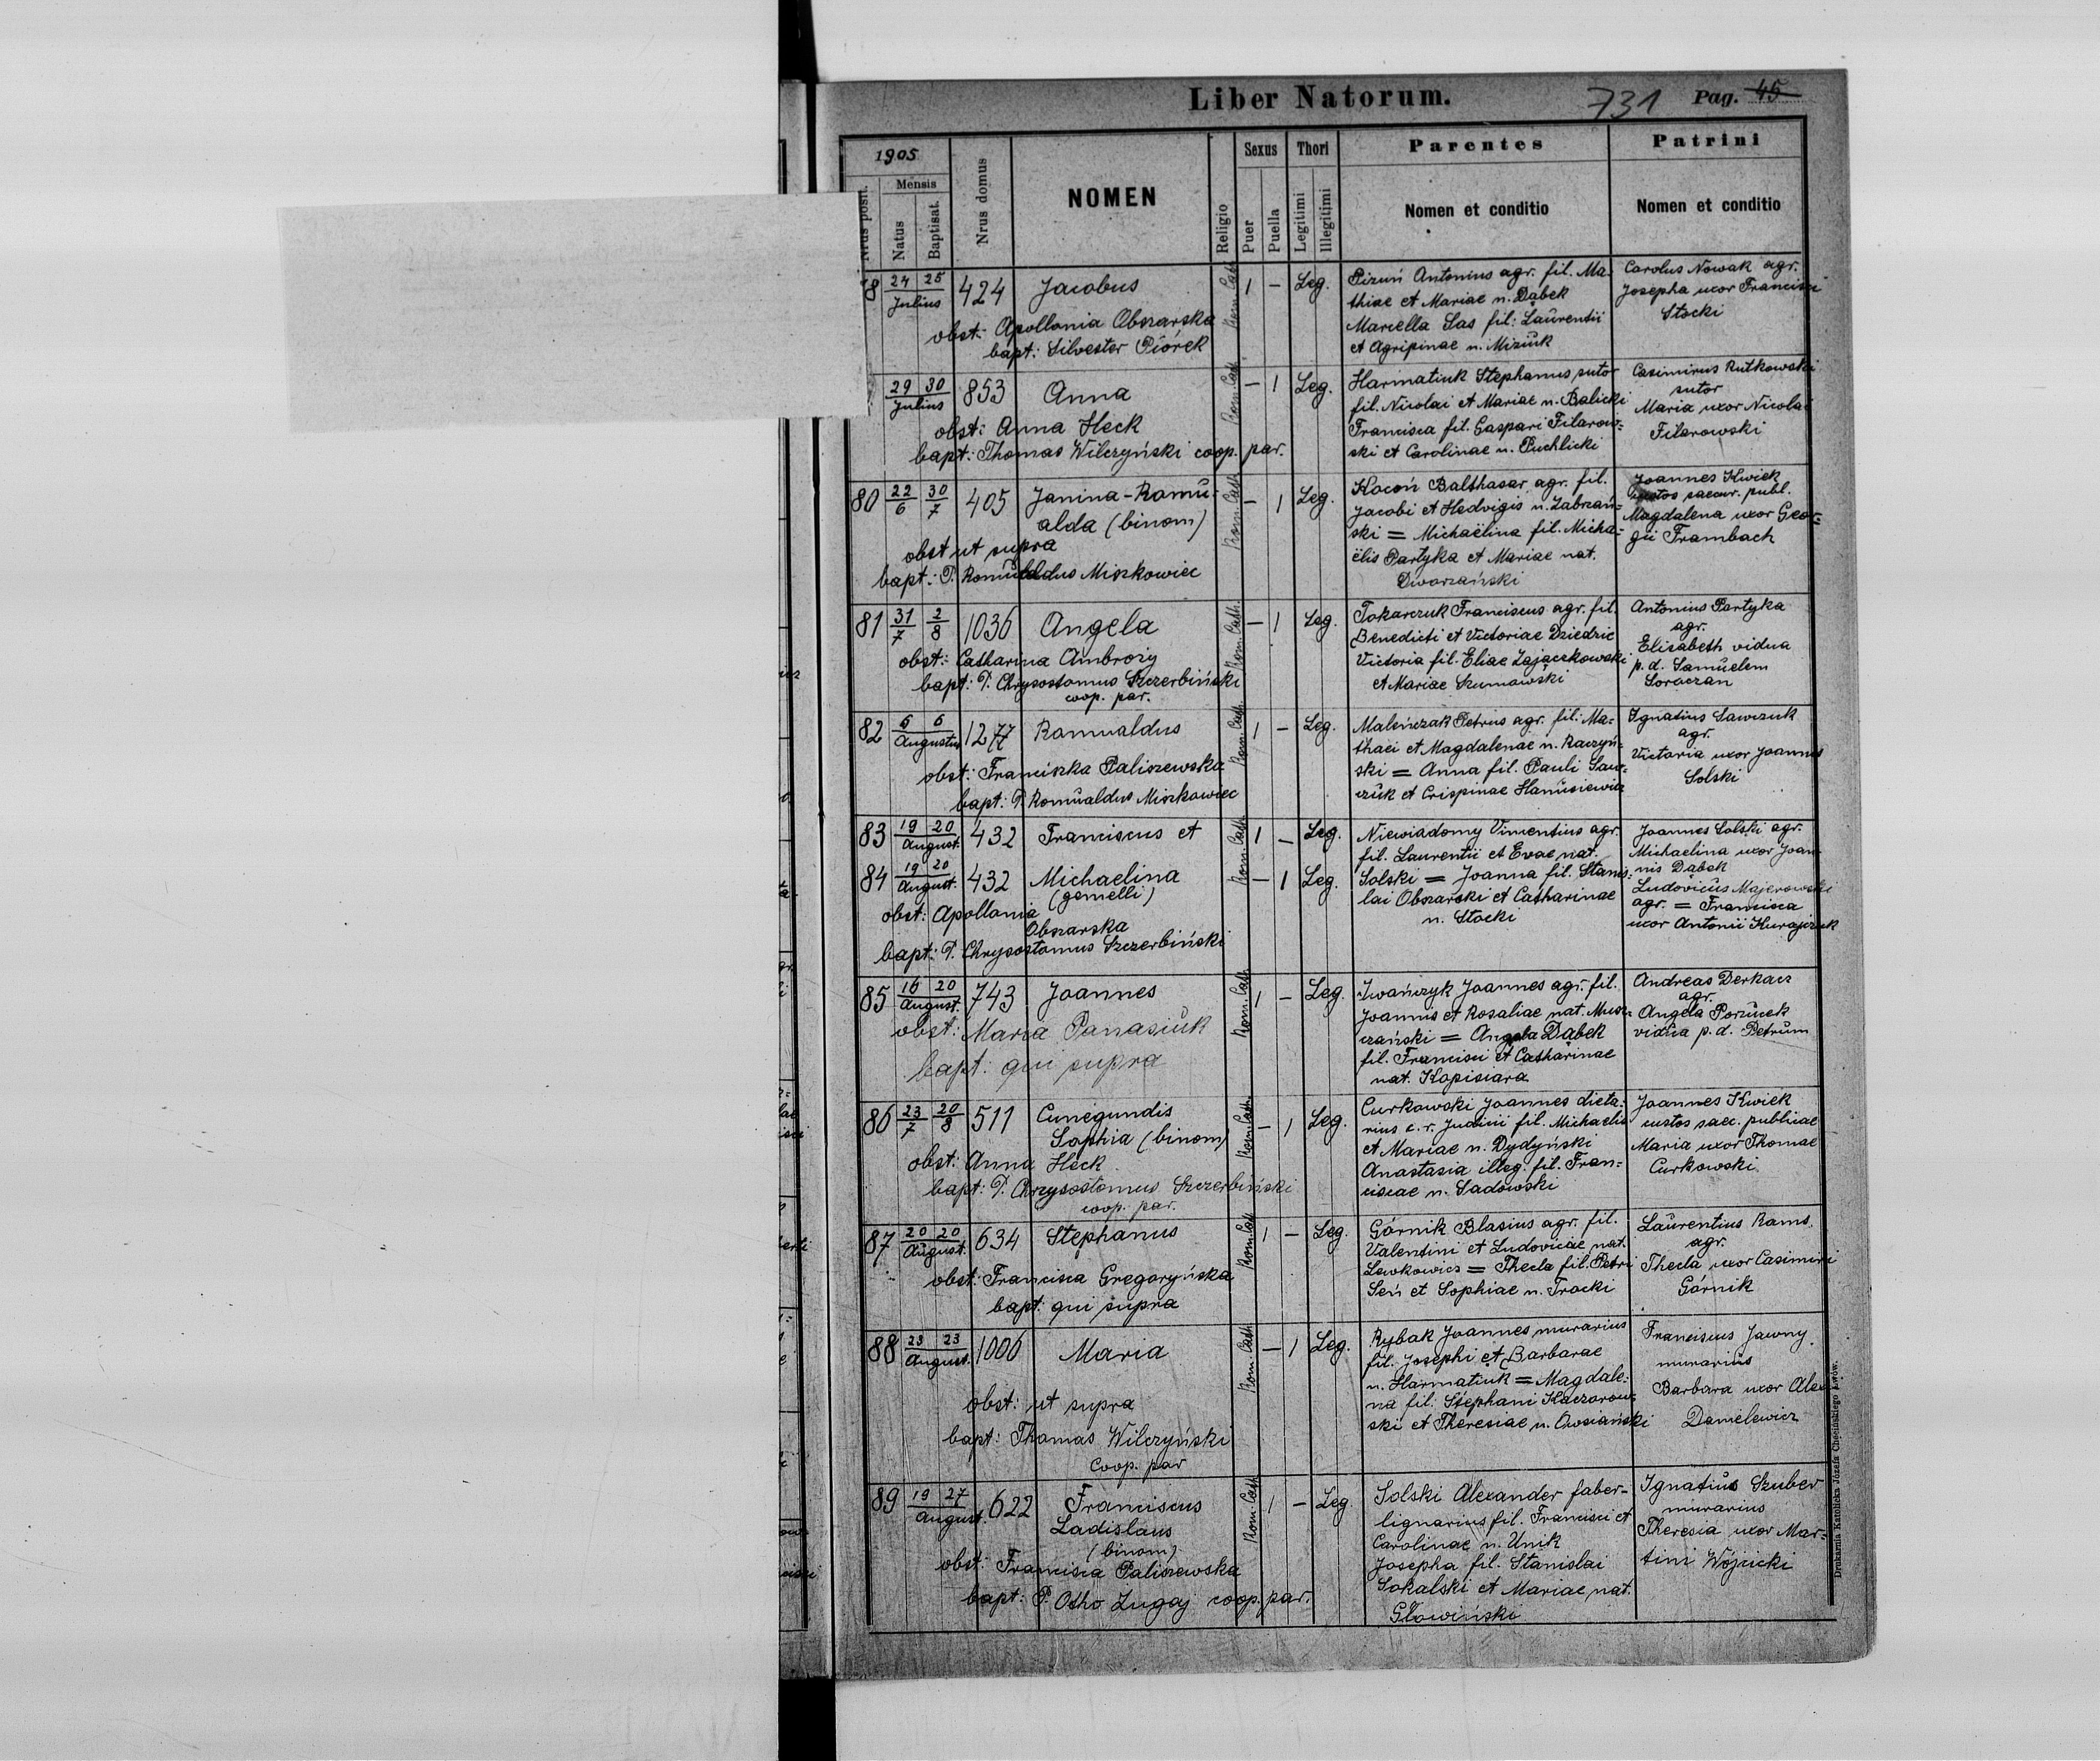 Liber Natorum.
731 Pag. 45
1905
Mensis
Nrus posit.
Natus
Baptisat.
Nrus domus
NOMEN
Religio
Sexus
Puer
Puella
Thori
Legitimi
Illegitimi
Parentes
Nomen et conditio
Patrini
Nomen et conditio
8 24 25 Julius 424 Jacobus Rom. Cath. 1 - Leg.
obst: Apollonia Obszarska
bapt: Silvester Piórek
Pizuń Antonius agr. fil. Ma-
thiae et Mariae n. Dąbek
Marcella Sas fil: Laurentii
et Agripinae n. Miziuk
Carolus Nowak agr.
Josepha uxor Francisci
Stocki
29 30 Julius 853 Anna Rom. Cath. - 1 Leg.
obst: Anna Heck
bapt: Thomas Wilczyński coop. par.
Harmatiuk Stephanus sutor
fil. Nicolai et Mariae n. Balicki
Francisca fil. Gaspari Filarow=
ski et Carolinae n. Puchlicki
Casimirus Rutkowski
sutor
Maria uxor Nicolai
Filarowski
80 22/6 30/7 405 Janina-Romu- Rom. Cath. - 1 Leg.
alda (binom)
obst ut supra
bapt: P. Romualdus Miszkowiec
Kocoń Balthasar agr. fil.
Jacobi et Hedvigis n. Zabrzań=
ski = Michaëlina fil. Micha=
ëlis Partyka et Mariae nat.
Dworzański
Joannes Kwiek
custos saecur. publ.
Magdalena uxor Geor=
gii Frambach
81 31/7 2/8 1036 Angela Rom. Cath. - 1 Leg.
obst: Catharina Ambroży
bapt: P. Chrysostomus Szczerbiński
coop. par.
Tokarczuk Franciscus agr. fil.
Benedicti et Victoriae Dziedzic
Victoria fil. Eliae Zajączkowski
et Mariae Szumowski
Antonius Partyka
agr.
Elisabeth vidua
p. d. Samuelem
Soroczan
82 6 6 Augustus 1277 Romualdus Rom. Cath. 1 - Leg.
obst: Franciszka Paliszewska
bapt: P. Romualdus Miszkowiec
Maleńczak Petrus agr. fil: Ma=
thaei et Magdalenae n. Raczyń=
ski = Anna fil. Pauli Saw=
czuk et Crispinae Hanusiewicz
Ignatius Sawczuk
agr.
Victoria uxor Joannis
Solski
83 19 20 August. 432 Franciscus et Rom. Cath. 1 - Leg.
84 19 20 August. 432 Michaelina - 1 Leg.
(gemelli)
obst: Apollonia
Obszarska
bapt: P. Chrysostomus Szczerbiński
Niewiadomy Vincentius agr.
fil. Laurentii et Evae nat.
Solski = Joanna fil. Stanis=
lai Obszarski et Catharinae
n. Stocki
Joannes Solski agr.
Michaelina uxor Joan-
nis Dąbek
Ludovicus Majerowski
agr. = Francisca
uxor Antonii Kurajczuk
85 16 20 August. 743 Joannes Rom. Cath. 1 - Leg.
obst: Maria Panasiuk
bapt: qui supra
Iwańczyk Joannes agr. fil.
Joannis et Rosaliae nat. Musz=
czański = Angela Dąbek
fil. Francisci et Catharinae
nat. Kopisiara
Andreas Derkacz
agr.
Angela Poruucek
vidua p. d. Petrum
86 23/7 20/8 511 Cunegundis Rom. Cath. - 1 Leg.
Sophia (binom)
obst: Anna Heck
bapt: P. Chrzysostomus Szczerbiński
coop. par.
Curkowski Joannes dieta-
rius c. r. Judicii fil. Michaelis
et Mariae n. Dydyński
Anastasia illeg. fil. Fran=
ciscae n. Sadowski
Joannes Kwiek
custos saec. publicae
Maria uxor Thomae
Curkowski
87 20 20 August. 634 Stephanus Rom. Cat 1 - Leg.
obst: Francisca Gregoryńska
bapt: qui supra
Górnik Blasius agr. fil.
Valentini et Ludovicae nat.
Lewkowicz = Thecla fil. Petri
Seń et Sophiae n. Trocki
Laurentius Rams
agr.
Thecla uxor Casimiri
Górnik
88 23 23 August. 1006 Maria Rom. Cath. - 1 Leg.
obst: ut supra
bapt: Thomas Wilczyński
coop. par
Rybak Joannes murarius
fil. Josephi et Barbarae
n. Harmatiuk = Magdale-
na fil: Stephani Kaczorow=
ski et Theresiae n. Owsiański
Franciscus Jawny
murarius
Barbara uxor Alex
Danielewicz
89 19 27 August. 622 Franciscus Rom. Cath 1 - Leg.
Ladislaus
(binom)
obst: Francisca Paliszewska
bapt: P. Otho Zugaj coop. par.
Solski Alexander faber-
lignarius fil. Francisci et
Carolinae n. Unik
Josepha fil. Stanislai
Sokalski et Mariae nat.
Głowiński
Ignatius Szuber
murarius
Theresia uxor Mar=
tini Wojcicki
Drukarnia Katolicka Józefa Chęcińskiego Lwów.